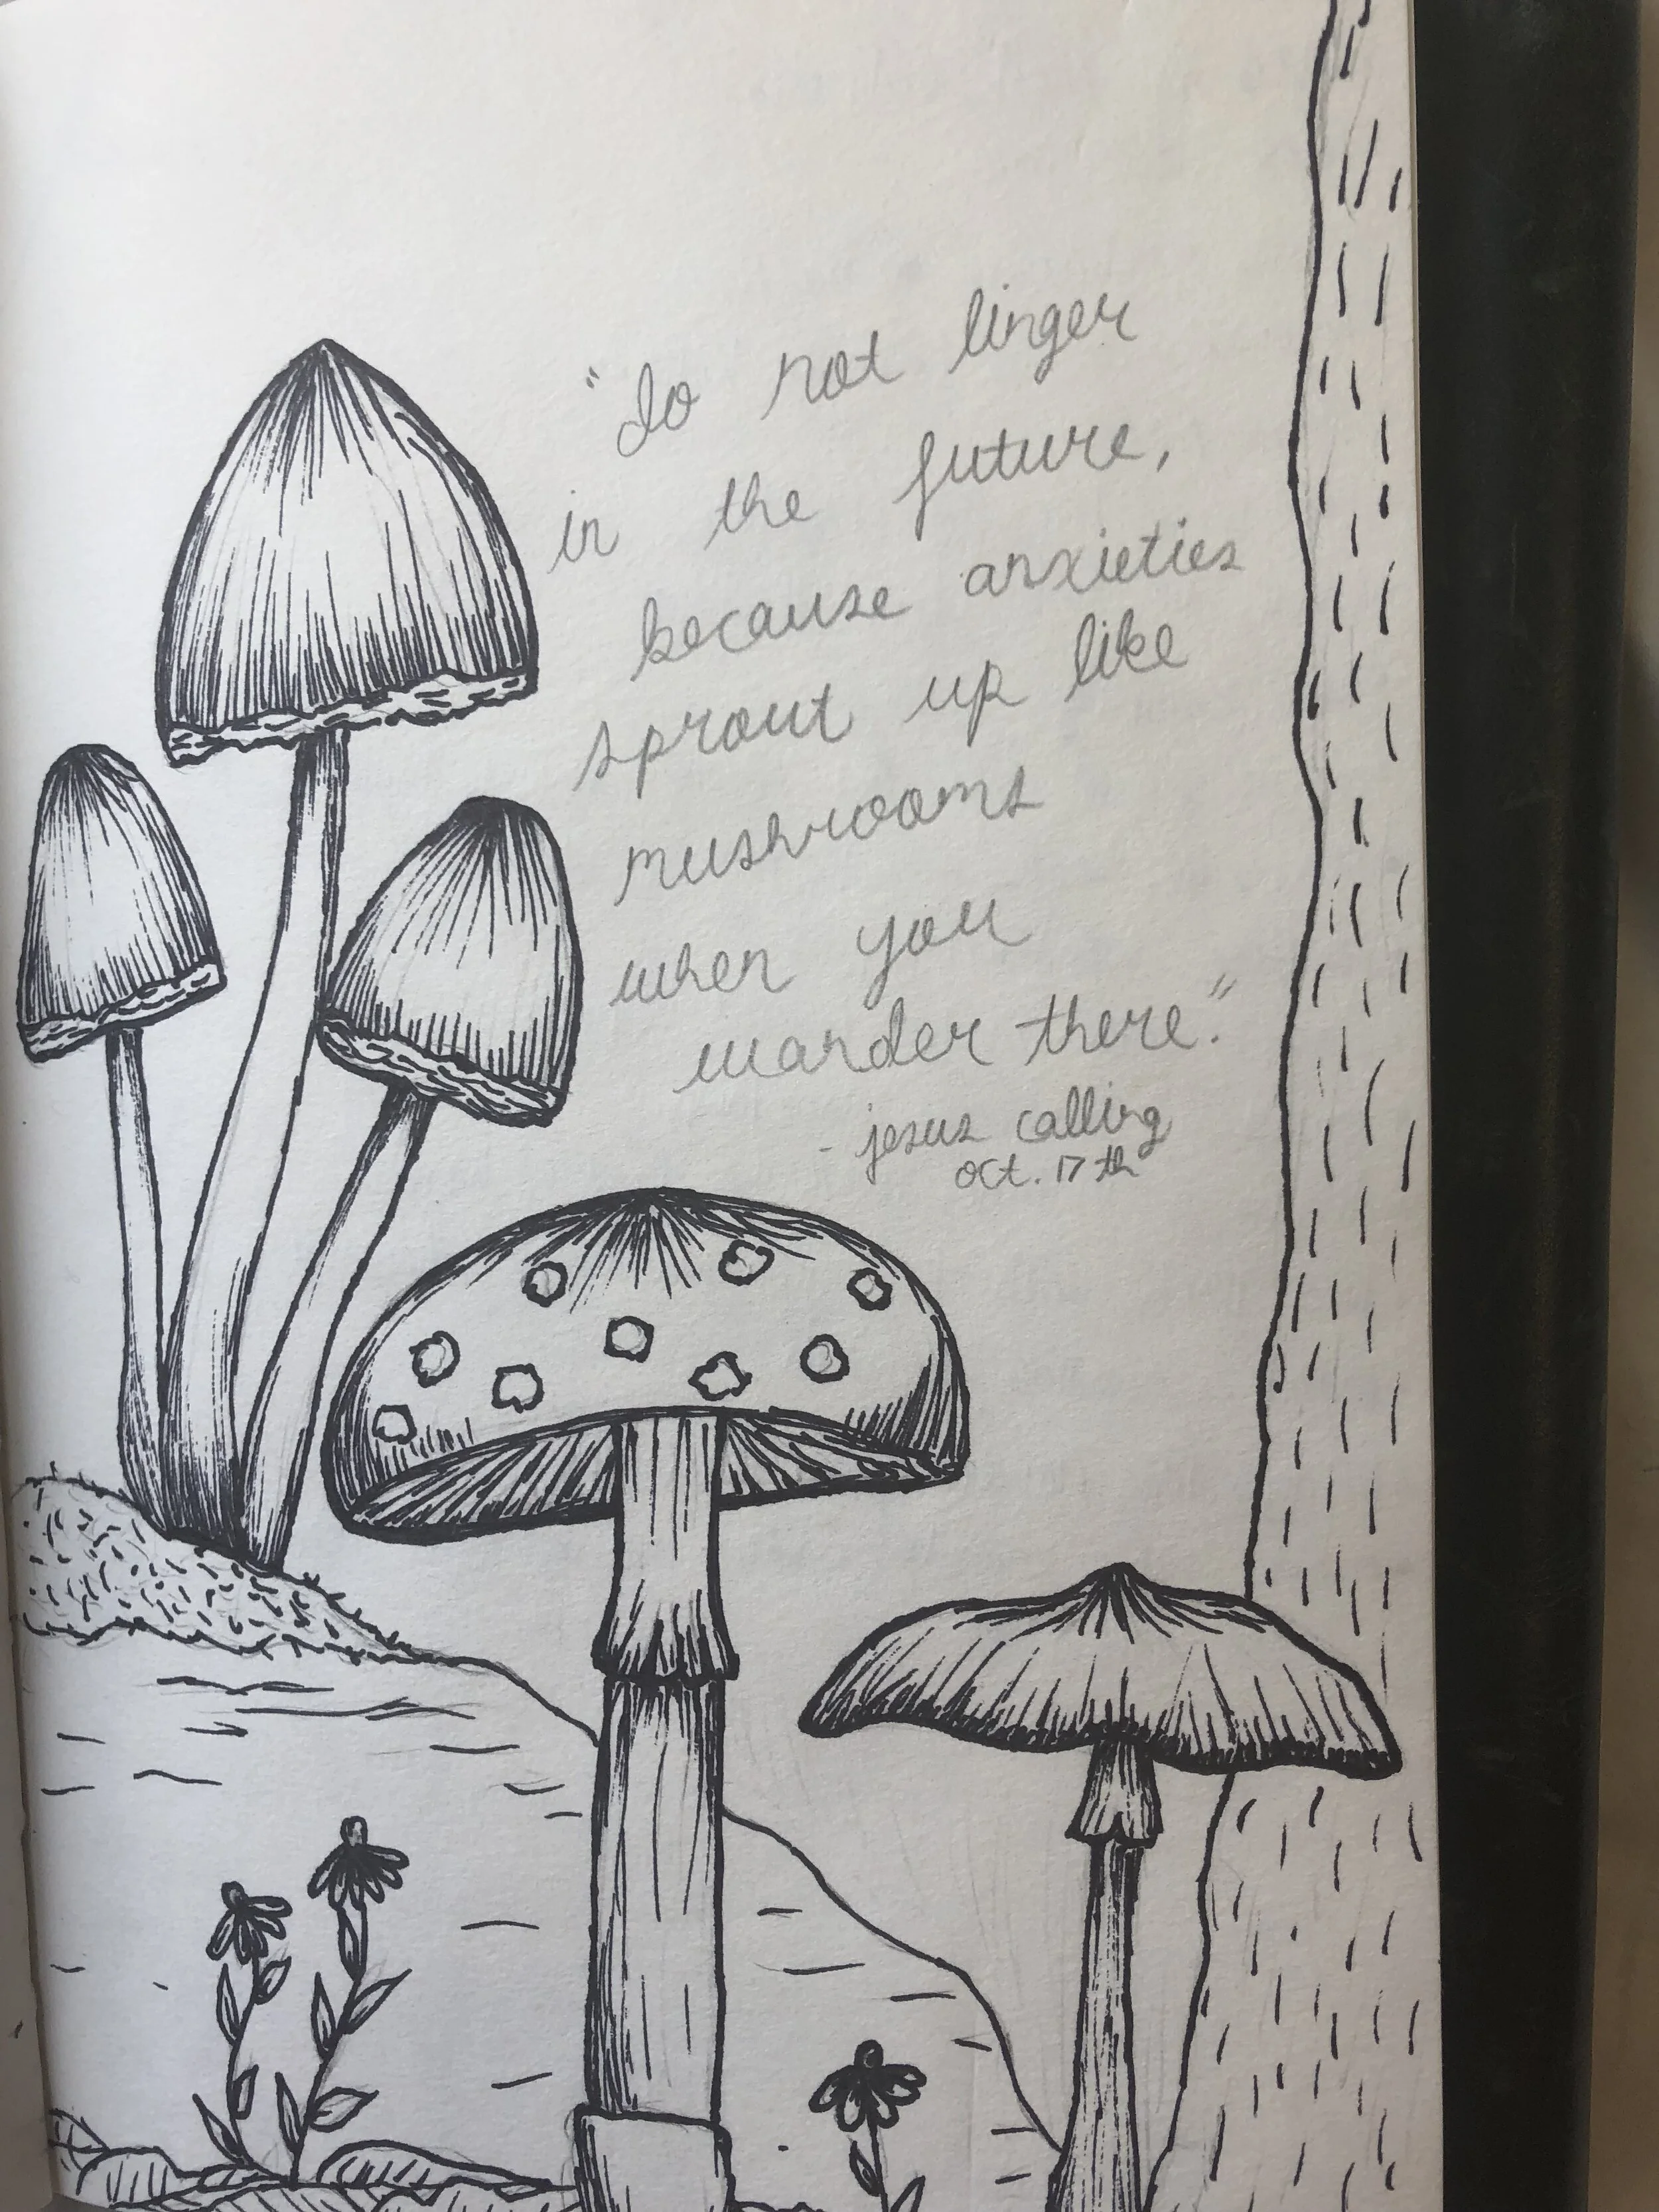 "do not linger
in the future,
because anxieties
sprout up like
mushrooms
when you
wander there."
- jesus calling
oct. 17th